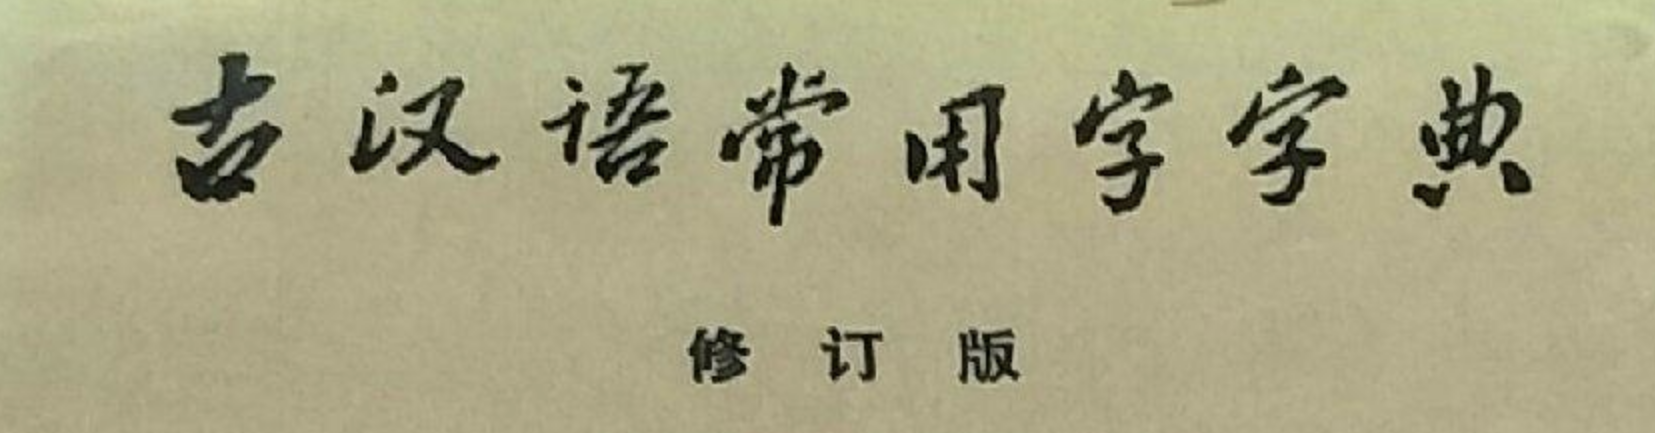 古汉语常用字字典
修订版